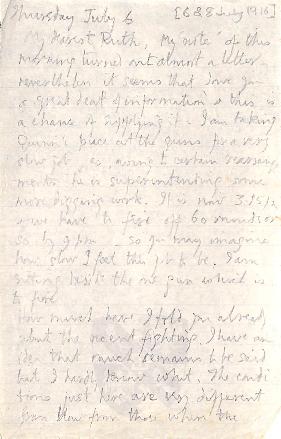 Thursday July 6 [6 & 8 July 1916]
My dearest Ruth, My note of this
morning turned out almost a letter
nevertheless it seems that I owe you
a great deal of information & this is
a chance of supplying it. I am taking
Quinn's place at the guns for a very
slow job as, owing to certain rearrange
ments he is superintending some
more digging work. It is now 3.15 p.m.
& we have to fire off 60 rounds or
so by 9 p.m. so you may imagine
how slow I feel this job to be. I am
sitting beside the one gun which is
to fire.
How much have I told you already
about the recent fighting. I have an
idea that much remains to be said
but I hardly know what. The condi
tions just here are very different
from those where the